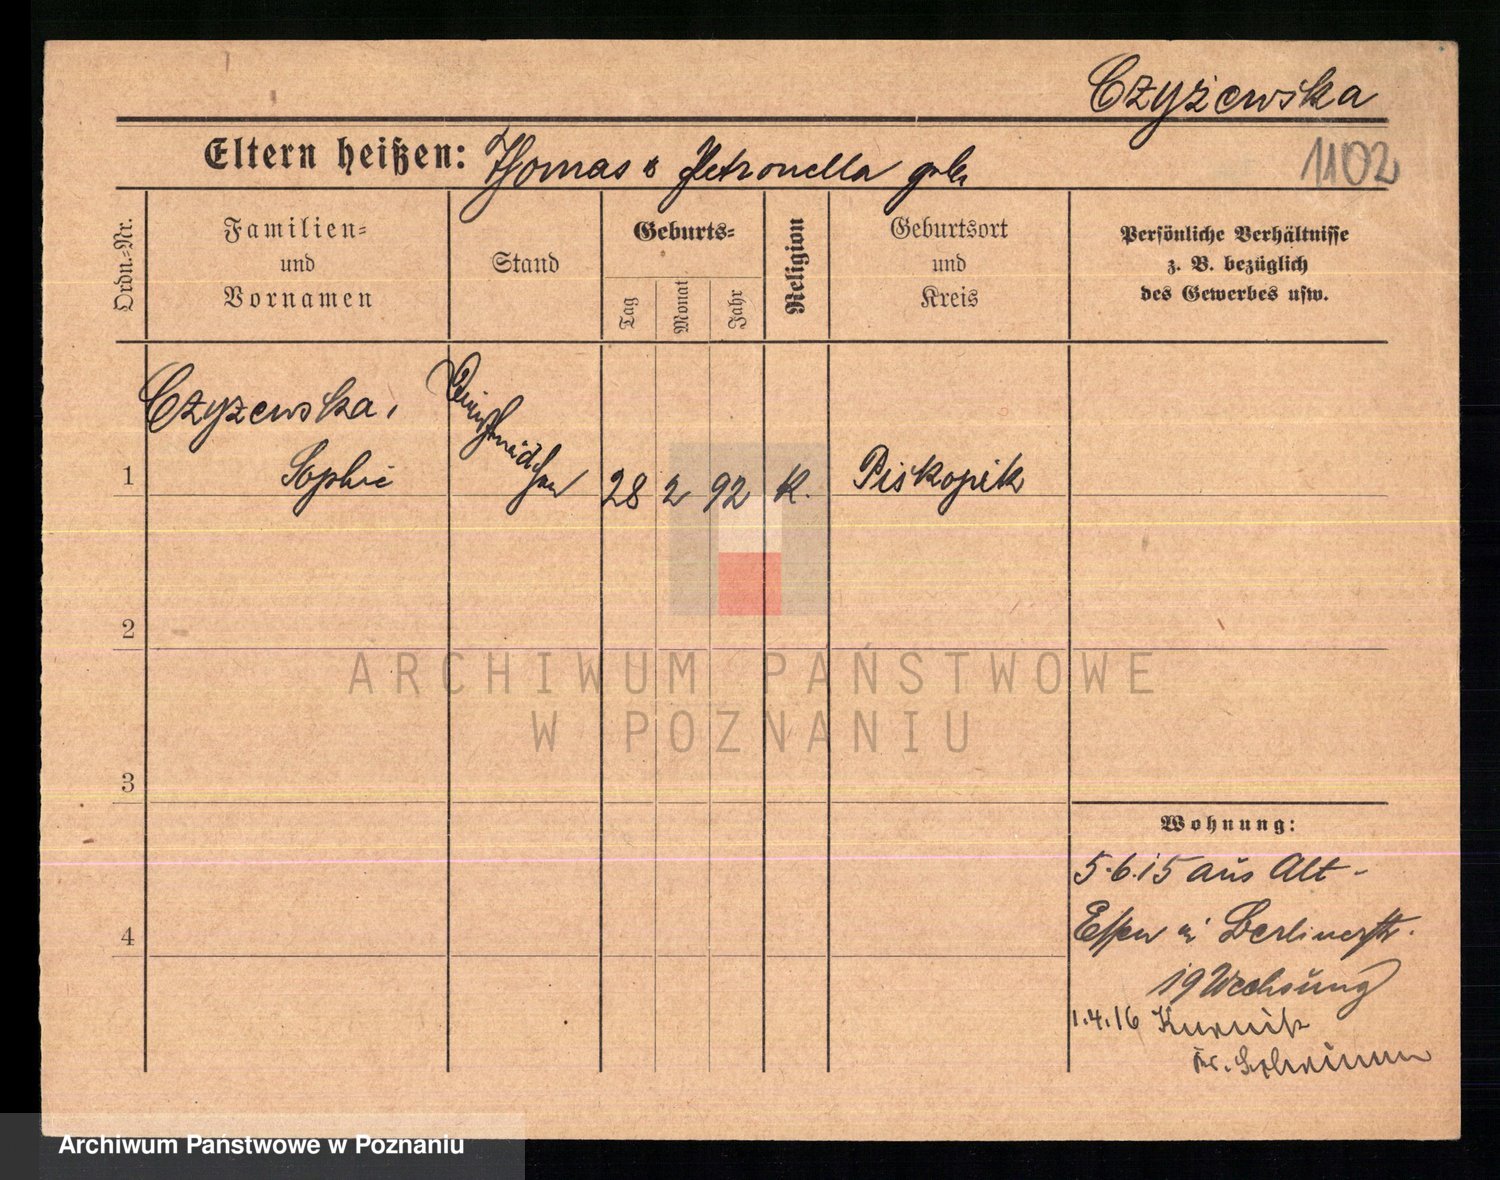 Czyżewska
Eltern heißen: Thomas & Petronella geb.
1102
Ordn.-Nr.
Familien=
und
Vornamen
Stand
Geburts=
Tag
Monat
Jahr
Religion
Geburtsort
und
Kreis
Persönliche Verhältnisse
z. B. bezüglich
des Gewerbes usw.
Czyzewska,
1 Sophie Dienstmädchen 28 2 92 K. Piskopik
2
3
4
ARCHIWUM PAŃSTWOWE
W POZNANIU
Wohnung:
5.6.15 aus Alt-
Essen in Berlinerstr.
19 Wechsung
1.4.16 Kurnik
Kr. Schrimm
Archiwum Państwowe w Poznaniu